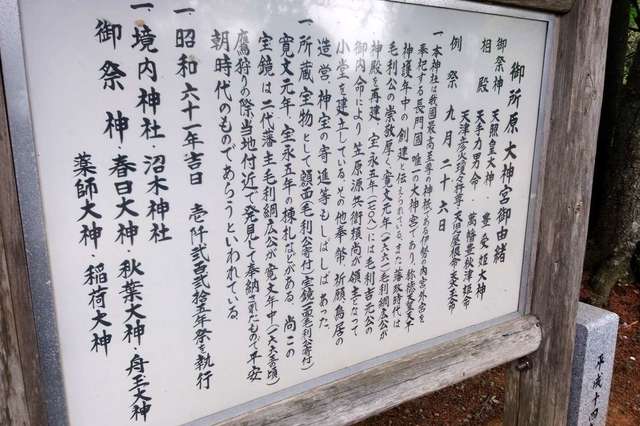 御所原大神宮御由緒
御祭神 天照皇大神・豊受姫大神
相殿 天手力男命・萬幡豊秋津姫命
天津彦火瓊々杵尊・天児屋根命・天太玉命
例祭 九月二十六日
一本神社は我國最高至尊の神様である伊勢の内宮外宮を
奉祀する長門國唯一の大神宮であり、称徳天皇天平
神護年中の創建と伝えられている。また藩政時代は
毛利公の崇敬厚く、寛文元年(一六六一)毛利綱広公が
神殿を再建、宝永五年(一七〇八)には毛利吉元公の
御内命により笠原源共衛頼尚が願主となって
小堂を建立している。その他奉幣祈願、鳥居の
造営、神宝の寄進等もしばしばあった。
一所蔵宝物として額面(毛利公寄付)宝鏡(二面毛利公寄付)
寛文元年、宝永五年の棟札などがある。尚この
宝鏡は二代藩主毛利綱広公が寛文年中(一六六一の頃)
鷹狩りの際当地付近で発見して奉納されたもので平安
朝時代のものであらうといわれている。
一昭和六十一年吉日 壱阡弐百弐拾五年祭を執行
一境内神社・沼木神社
御祭神・春日大神・秋葉大神・舟玉大神
薬師大神・稲荷大神
平成十四